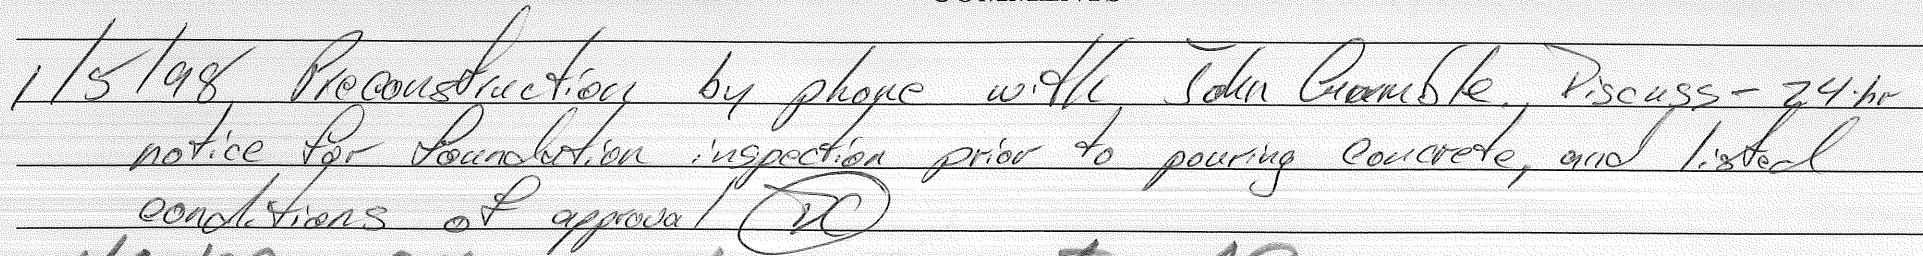 COMMENTS
1/5/98 Preconstruction by phone with John Gramble. Discuss - 24-hr
notice for foundation inspection prior to pouring concrete, and listed
conditions of approval